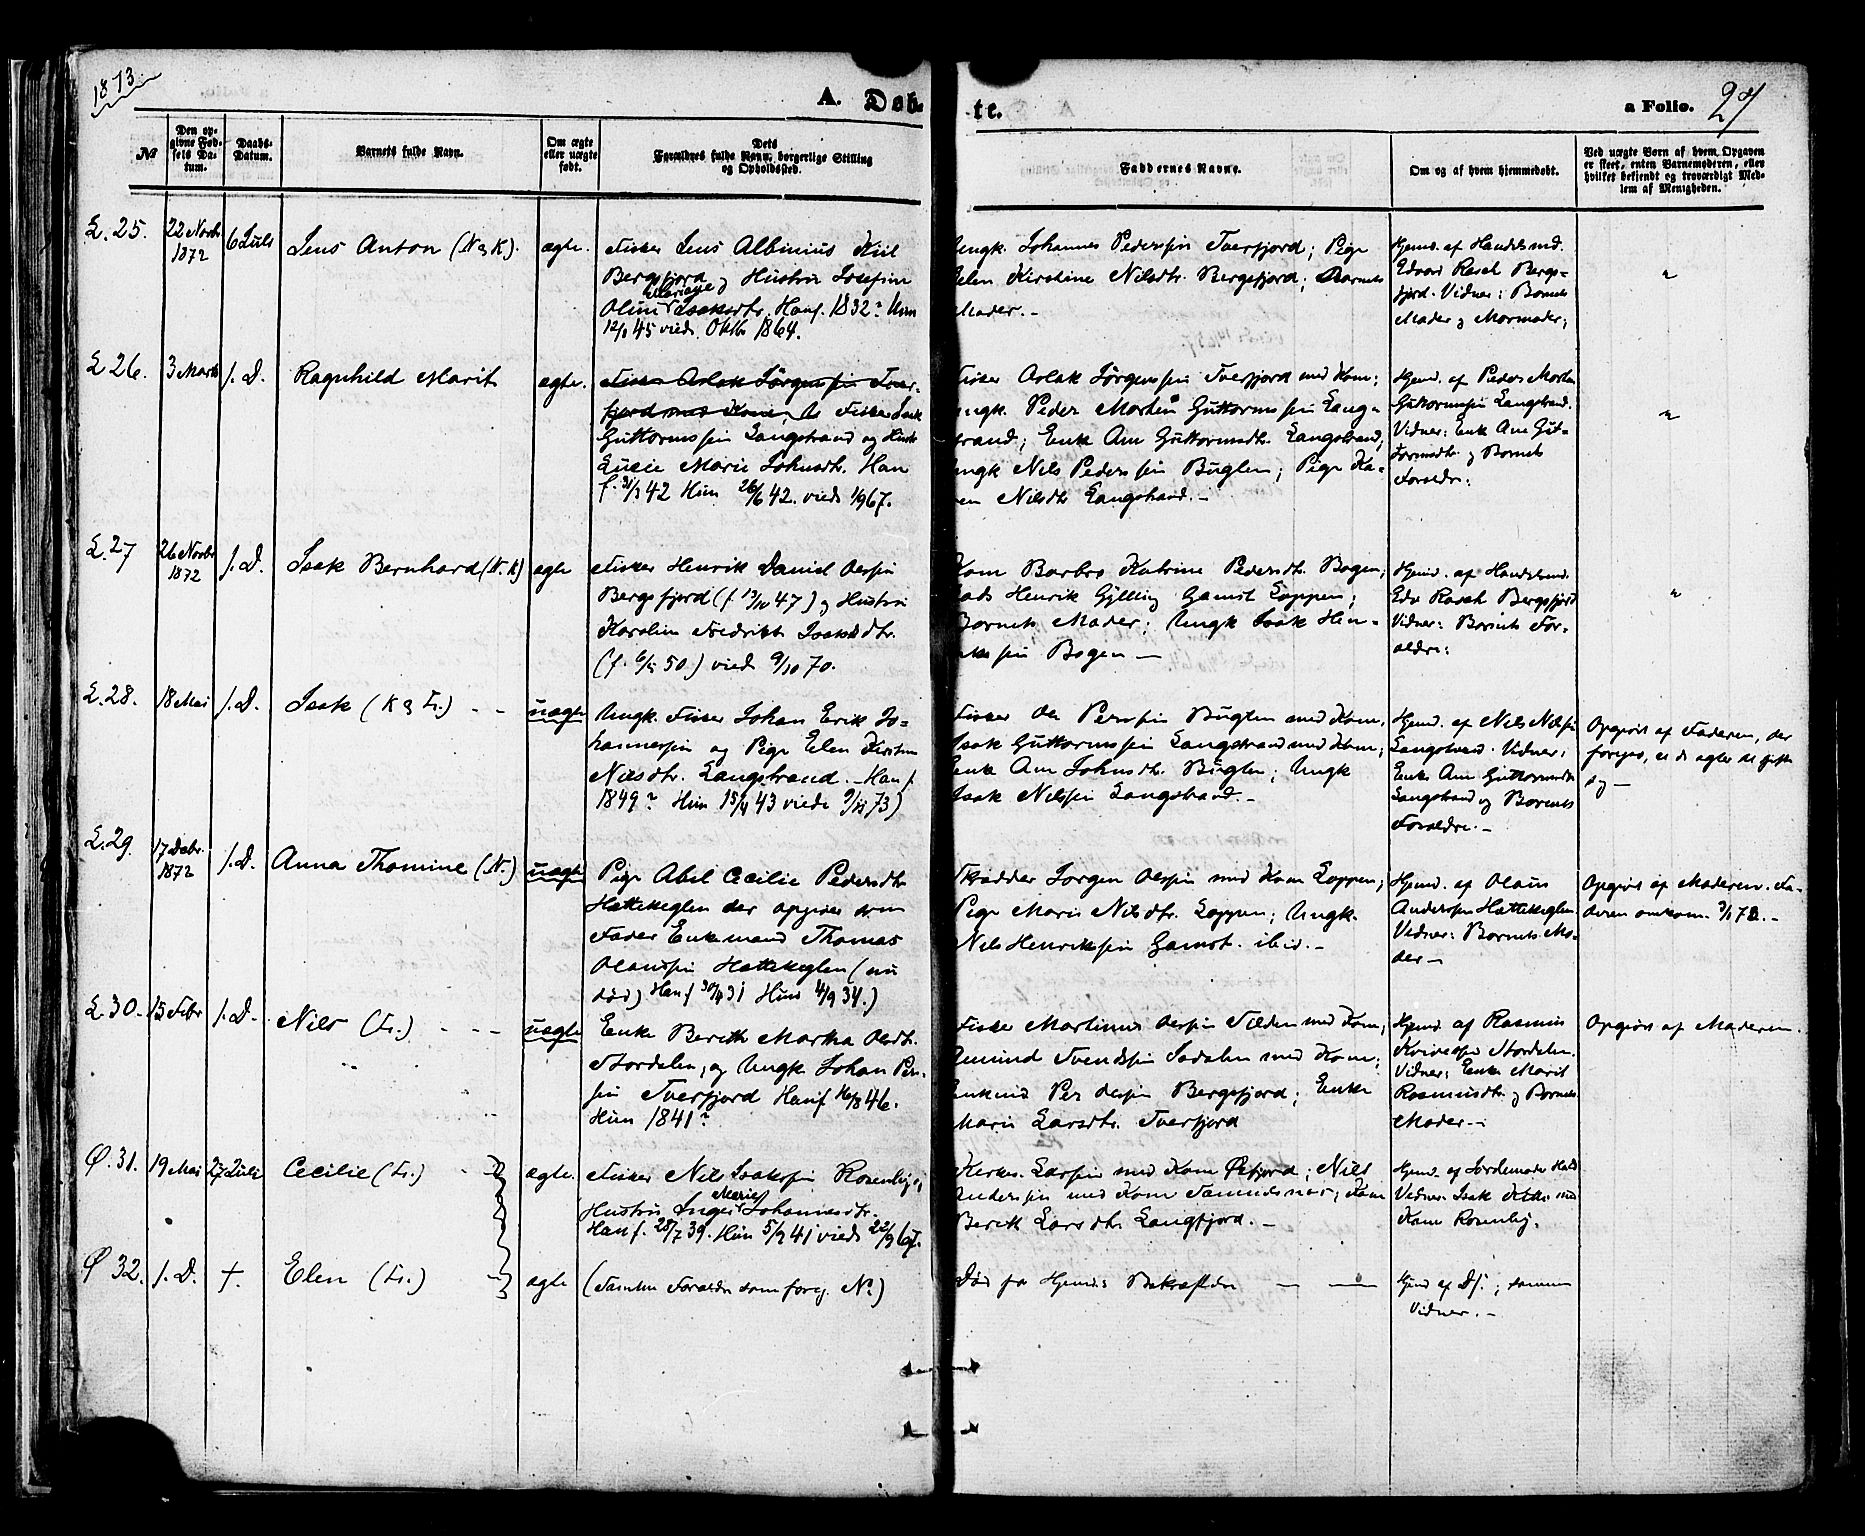 1873.
A. Døb-
te.
a Folio. 27
№
Den op-
givne Fød-
sels Da-
tum.
Daabs-
Datum.
Barnets fulde Navn.
Om ægte
eller uægte
født.
Dets
Forældres fulde Navn, borgerlige Stilling
og Opholdssted.
Faddernes Navne.
Om og af hvem hjemmedøbt.
Ved uægte Børn af hvem Opgaven
er skeet, enten Barnemoderen, eller
hvilket bekjendt og troværdigt Med-
lem af Menigheden.
L. 25.
22 Novbr
1872
6 Juli
Jens Anton (N & K).
ægte.
Fisker Jens Albinius Kiil
Bergsfjord og Hustru Josefine
Mariane
Oline Isaksdtr. Han f. 1832? Hun
12/1 45 viede Oktbr 1864.
Ungk. Johannes Pederssøn Tverfjord; Pige
Elen Kirstine Nilsdtr. Bergsfjord; Barnets
Moder. –
Hjemd. af Handelsmd.
Edvard Rasch Bergs-
fjord. Vidner: Barnets
Moder og Mormoder;
"
L 26.
3 Marts
s. D.
Ragnhild Marit
ægte.
Fisker Aslak Jørgenssøn Tver-
fjord med Kone, Fisker Isak
Guttormssøn Langstrand og Hustr
Lucie Marie Johnsdtr. Han
f. 31/3 42 Hun 26/6 42. viede 1/9 67.
Fisker Aslak Jørgenssøn Tverfjord med Kone;
Ungk. Peder Morten Guttormssøn Lang-
strand; Enke Ane Guttormsdtr. Langstrand;
Ungk Nils Pederssøn Buglen; Pige Ka-
ren Nilsdtr Langstrand. –
Hjemd. af Peder Morten
Guttormssøn Langstrand.
Vidner: Enke Ane Gut-
tormsdtr. og Barnets
Forældre:
"
L. 27
26 Novbr
1872
s. D.
Isak Bernhard (N. K)
ægte
Fisker Henrik Daniel Olssøn
Bergsfjord (f. 13/10 47) og Hustru
Karoline Fredrikke Isaksdtr.
(f. 6/5 50.) viede 9/10 70.
Kone Barbro Katrine Pedersdtr. Bogen;
Mads Henrik Gylling Gamst Loppen;
Barnets Moder; Ungk Isak Hen-
rikssøn Bogen –
Hjemd. af Handelsmd.
Edv Rasch Bergsfjord
Vidner: Barnets For-
ældre:
"
L. 28.
18 Mai
s. D.
Isak (K & Fr.) - -
uægte
Ungk. Fisker Johan Erik Jo-
hannessøn og Pige Elen Kirstine
Nilsdtr. Langstrand. – Han f
1849? Hun 15/4 43 viede 9/11 73)
Fisker Ole Perssøn Buglen med Kone;
Isak Guttormssøn Langstrand med Kone;
Enke Ane Johnsdtr. Buglen; Ungk
Isak Nilssøn Langstrand. –
Hjemd. af Nils Nilssøn
Langstrand. Vidner:
Enke Ane Guttormsdtr
Langstrand og Barnets
Forældre. –
Opgivet af Faderen, der
foregav, at de agter at gifte
sig –
L. 29.
17 Debr.
1872
s. D.
Anna Thomine (N.)
uægte
Pige Abel Cecilie Pedersdtr
Hættekeglen der opgives som
Fader Enkemand Thomas
Olaussøn Hættekeglen (nu
død) Han f 30/4 31 Hun 4/9 34.)
Skrædder Jørgen Olssøn med Kone Loppen;
Pige Maria Nilsdtr. Loppen; Ungk.
Nils Henrikssøn Gamst. ibid. –
Hjemd. af Olaus
Anderssøn Hættekeglen.
Vidner: Barnets Mo-
der –
Opgivet af Moderen. Fa-
deren omkom 3/1 73. –
L. 30.
15 Febr
s. D.
Nils (Fr.) - - -
uægte
Enke Berith Martha Olsdtr.
Stordalen, og Ungk. Johan Per-
søn Tverfjord Han f 16/8 46.
Hun 1841?
Fisker Martinus Olssøn Silden med Kone;
Amund Svendssøn Sødalen med Kone;
Enkemd Per Olssøn Bergsfjord; Enke
Maria Larsdtr. Tverfjord
Hjemd. af Rasmus
Stordalen.
Vidner: Enke Marit
Rasmusdtr. og Barnets
Moder. –
Opgivet af Moderen.
Ø. 31.
19 Mai
27 Juli
Cecilie (Fr.) -
ægte.
Fisker Nils Isakssøn Rosenlej og
Marie
Hustru Inger Johannesdtr.
Han f. 28/7 39. Hun 5/9 41 viede 22/9 67.
Kirkes. Larssøn med Kone Øxfjord; Nils
Anderssøn med Kone Tamundsnes; Kone
Berith Larsdtr. Langfjord. –
Hjemd. af Jordemoder
Vidner: Isak med
Kone Rosenlej.
Ø 32.
s. D.
†.
Elen (Fr.) -
ægte
(Samme Forældre som foreg. No)
Død før Hjemds Bekræftelse — —
Hjemd af Ds.; samme
Vidner. –